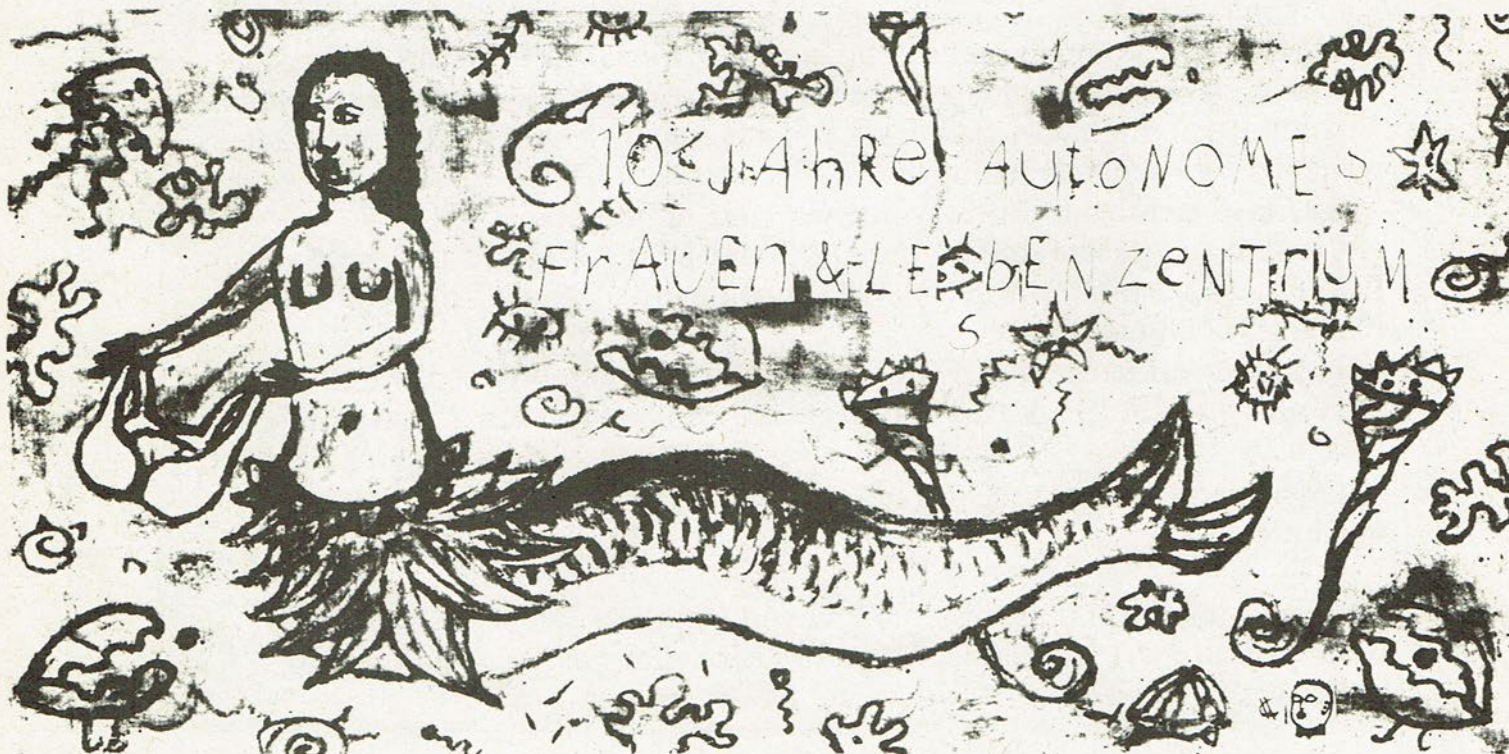 10 JAhRe AUtoNOMEs
FrAUEn & LEsbENzeNTrUM
S